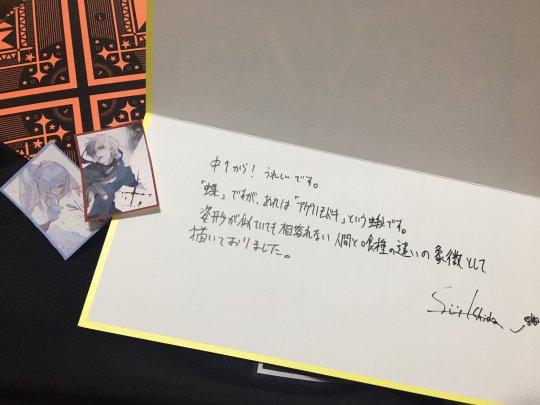 中1から！うれしいです。
「蝶」ですが、あれは「アゲハモドキ」という蛾です。
姿形が似ていても相容れない人間と喰種の違いの象徴として
描いておりました。
Sui Ishida